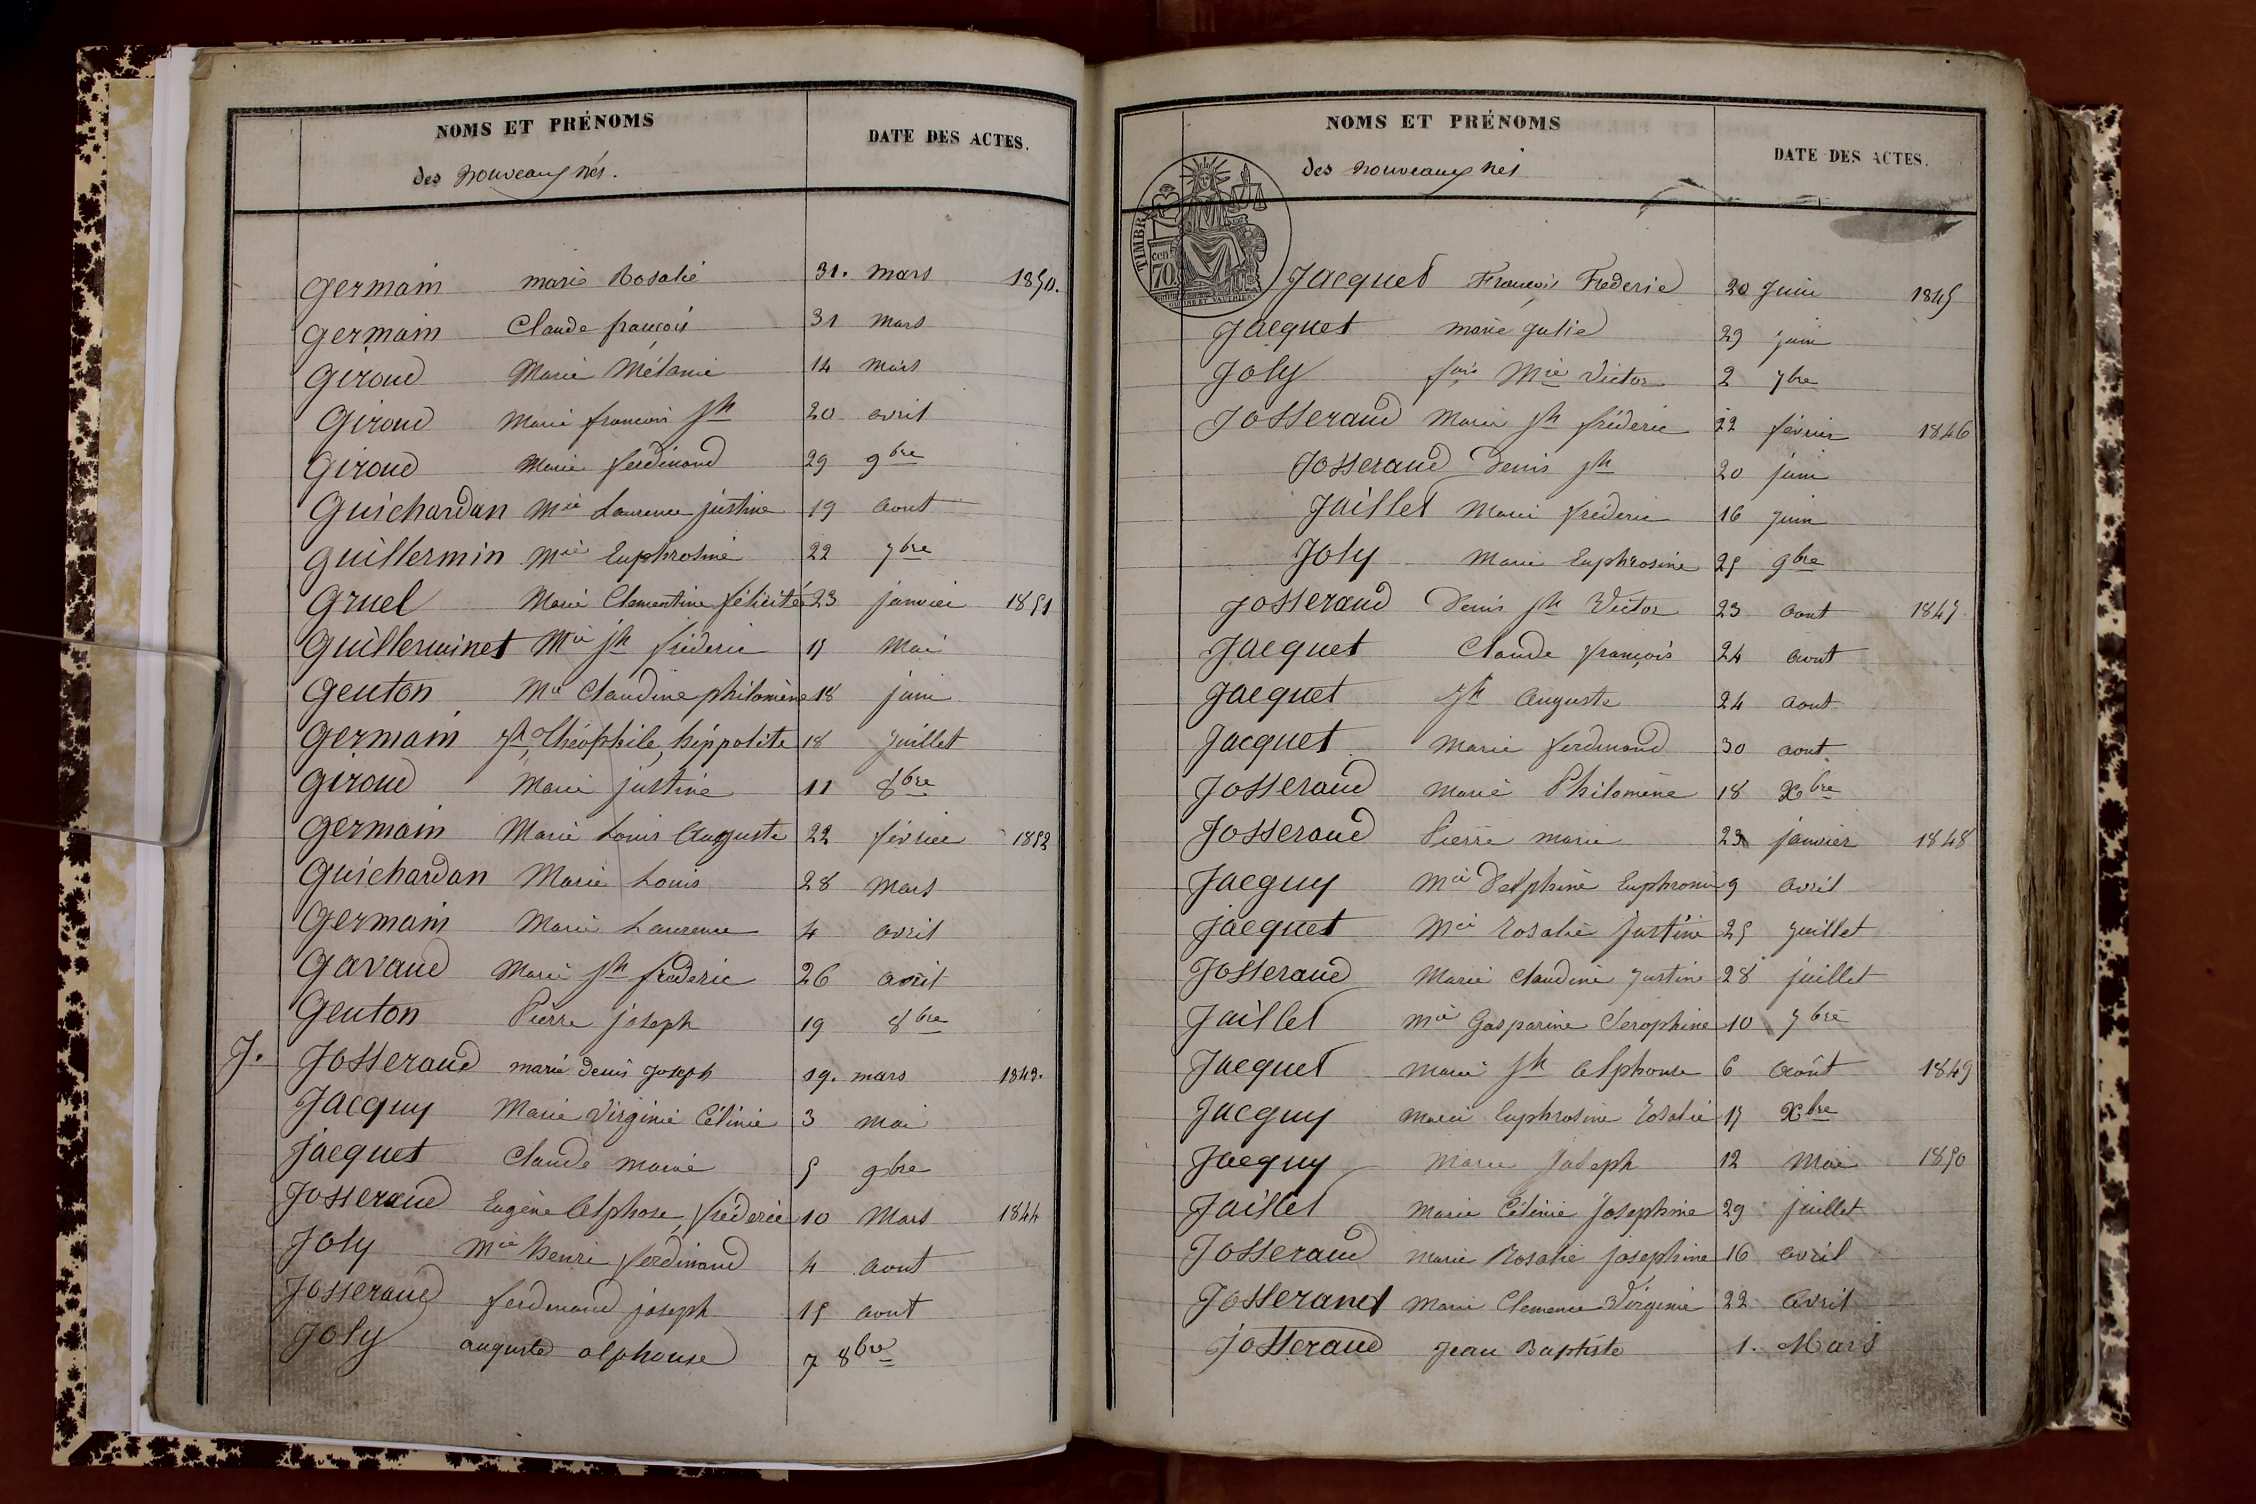 NOMS ET PRÉNOMS
DATE DES ACTES.
des nouveaux nés.
Germain marie Rosalie 31. mars 1850.
Germain Claude françois 31 mars
Giroud Marie Mélanie 14 mars
Giroud Marie françois jh 20 avril
Giroud Marie ferdinand 29 9bre
Guichardan Mie Laurence justine 19 aout
Guillermin Mie Euphrosine 22 7bre
Gruel Marie Clementine félicité 23 janvier 1851
Guillerminet Mie jh fréderic 17 Mai
Genton Mie Claudine philomène 18 juin
Germain jh Théophile, hippolite 18 juillet
Giroud Marie justine 11 8bre
Germain Marie Louis Auguste 22 février 1852
Guichardan Marie Louis 28 Mars
Germain Marie Laurence 4 avril
Gavand Marie jh frederic 26 avril
Genton Pierre joseph 19 8bre
J. Josserand marie denis joseph 19. mars 1843.
Jacquy Marie Virginie Célinie 3 mai
Jacquet Claude marie 5 9bre
Josserand Eugène Alphose, fréderic 10 Mars 1844
Joly Mie Henri ferdinand 4 aout
Josserand ferdinand joseph 15 aout
Joly auguste alphonse 7 8bre
NOMS ET PRÉNOMS
DATE DES ACTES.
des nouveaux nés
TIMBRE
cent
70
Jacquet François Frederic 20 Juin 1845
Jacquet marie julie 29 juin
Joly fois Mie Victor 2 7bre
Josserand Marie jh fréderic 22 février 1846
Josserand Denis jh 20 juin
Jaillet Marie frederic 16 juin
Joly Marie Euphrosine 25 9bre
Josserand Denis jh Victor 23 aout 1847
Jacquet Claude françois 24 aout
Jacquet jh Auguste 24 aout
Jacquet Marie ferdinand 30 aout
Josserand Marie Philomène 18 Xbre
Josserand Pierre marie 23 janvier 1848
Jacquy Mie Delphine Euphrosine 9 avril
Jacquet Mie Rosalie Justine 25 juillet
Josserand Marie Claudine justine 28 juillet
Jaillet Mie Gasparine Seraphine 10 7bre
Jacquet Marie jh alphonse 6 août 1849
Jacquy Marie Euphrosine Rosalie 17 Xbre
Jacquy Marie Joseph 12 Mai 1850
Jaillet Marie Célinie Josephine 29 juillet
Josserand Marie Rosalie josephine 16 avril
Josserand Marie Clemence Virginie 22 avril
Josserand Jean Baptiste 1. Mars